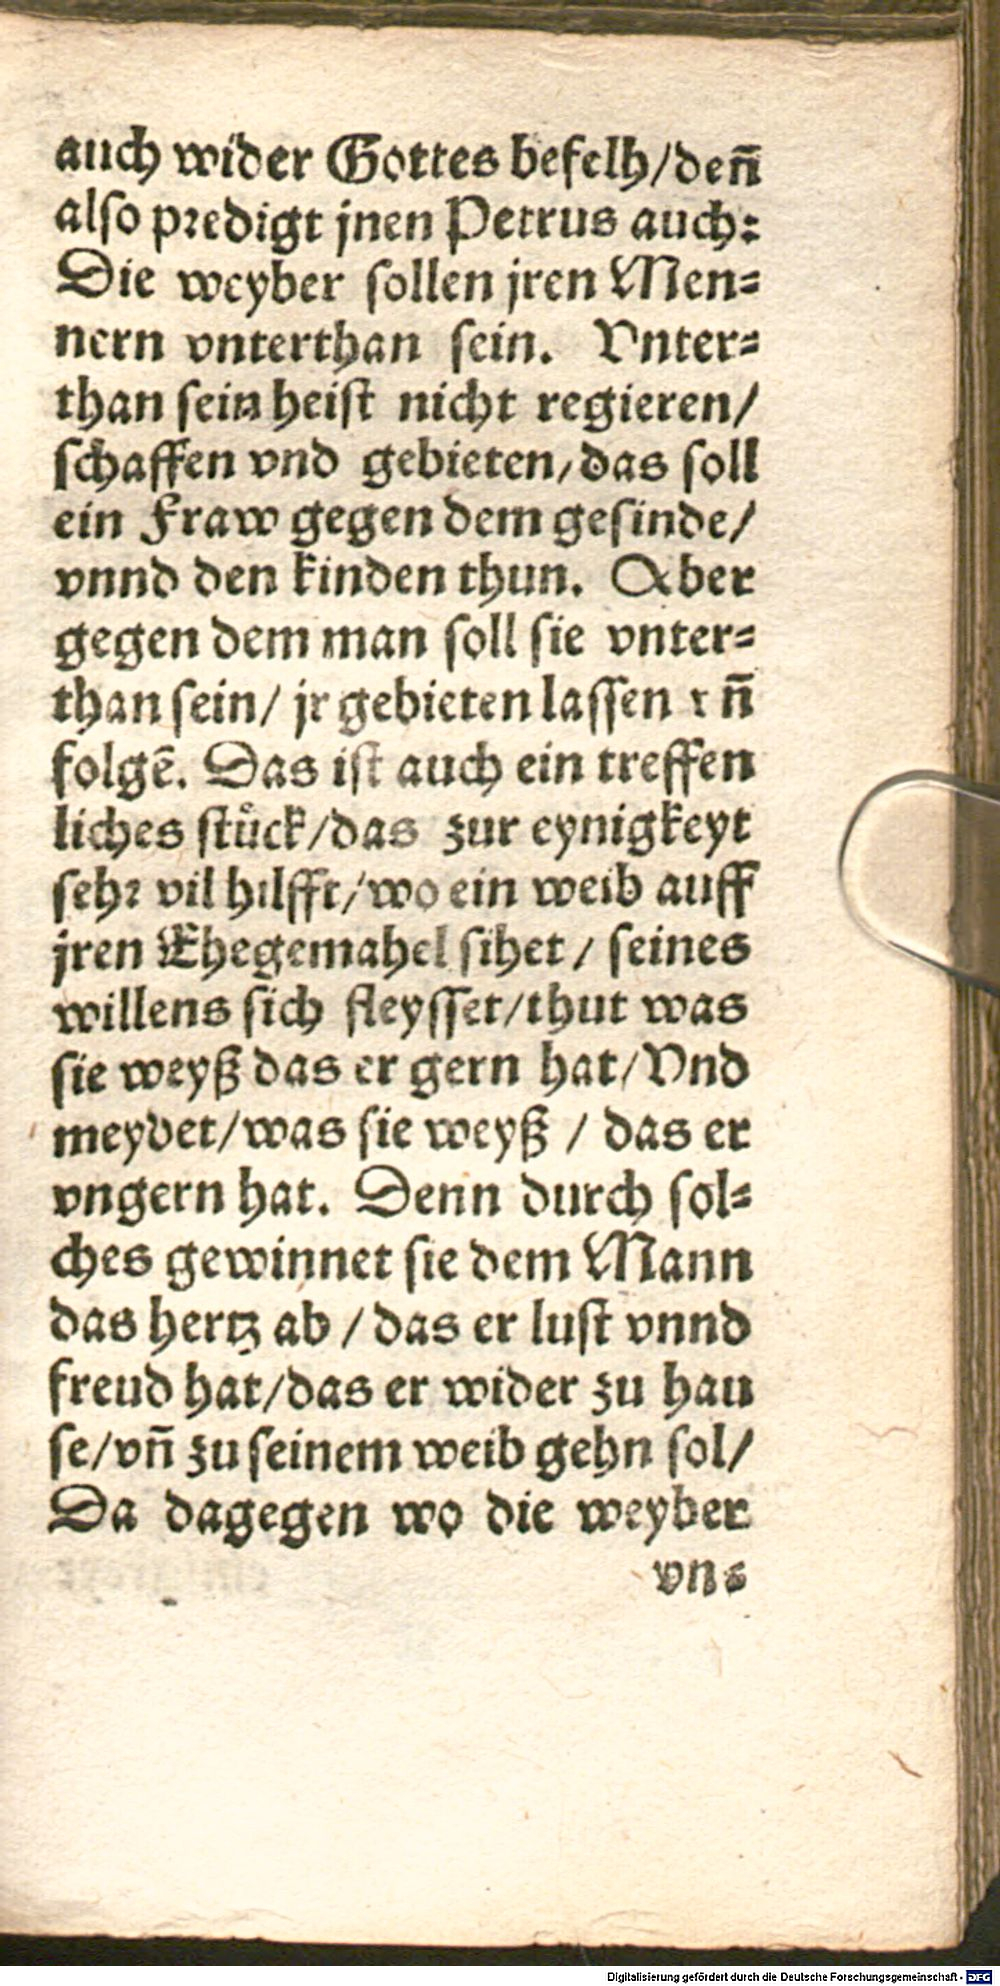 auch wider Gottes befelh/denn̄
also predigt jnen Petrus auch:
Die weyber sollen jren Men=
nern vnterthan sein. Vnter=
than sein heist nicht regieren/
schaffen vnd gebieten/das soll
ein Fraw gegen dem gesinde/
vnnd den kinden thun. Aber
gegen dem man soll sie vnter=
than sein/ jr gebieten lassen vn̄
folgē. Das ist auch ein treffen
liches stuͤck/das zur eynigkeyt
sehr vil hilfft/wo ein weib auff
jren Ehegemahel sihet/ seines
willens sich fleysset/thut was
sie weyß das er gern hat/Vnd
meydet/was sie weyß / das er
vngern hat. Denn durch sol=
ches gewinnet sie dem Mann
das hertz ab / das er lust vnnd
freud hat/das er wider zu hau
se/vn̄ zu seinem weib gehn sol/
Da dagegen wo die weyber
vn=
Digitalisierung gefördert durch die Deutsche Forschungsgemeinschaft - DFG